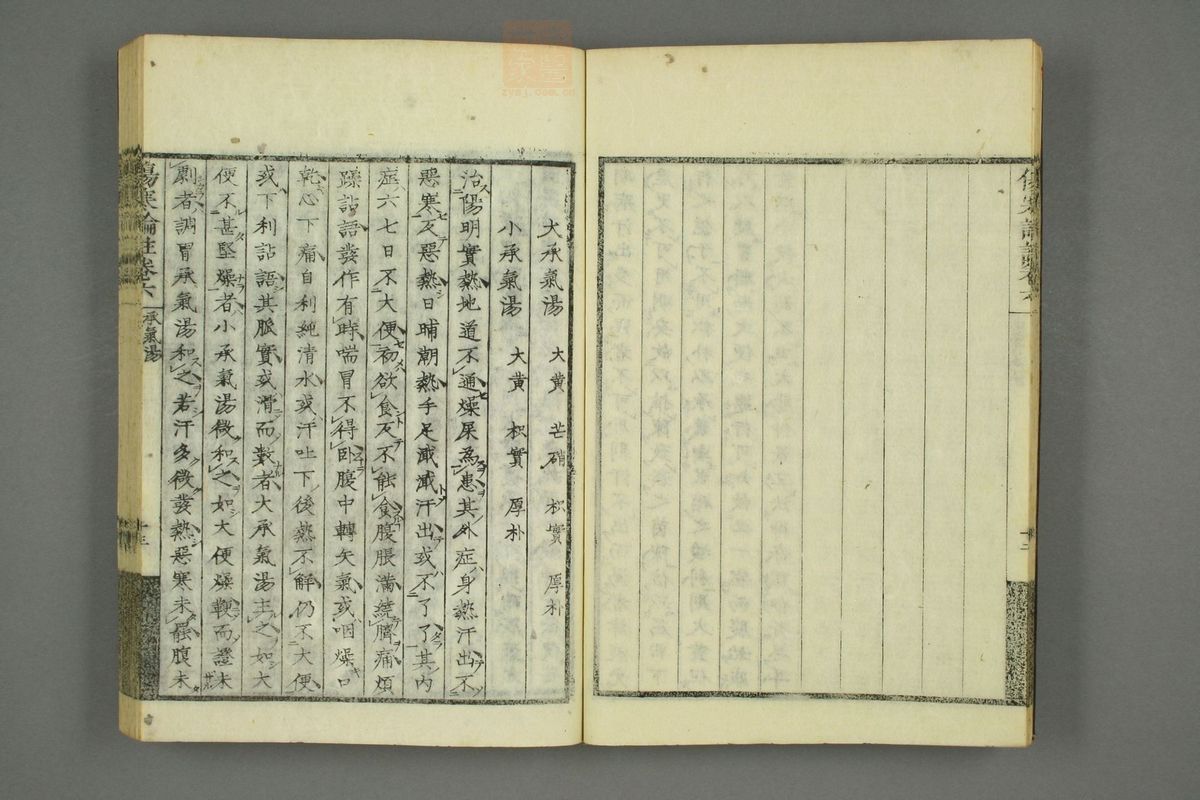 大承氣湯 大黄 芒硝 枳實 厚朴
小承氣湯 大黄 枳實 厚朴
治陽明實熱地道不通燥屎為患其外症身熱汗出不
惡寒反惡熱日晡潮熱手足濈濈汗出或不了了其内
症六七日不大便初欲食反不能食腹脹滿繞臍痛煩
躁詀語發作有時喘冒不得臥腹中轉矢氣或咽燥口
乾心下痛自利純清水或汗吐下後熱不解仍不大便
或下利詀語其脈實或滑而數者大承氣湯主之如大
便不甚堅燥者小承氣湯微和之如大便燥鞕而證未
劇者調胃承氣湯和之若汗多微發熱惡寒未罷腹未
傷寒論註卷六 承氣湯 十三
zysj.com.cn